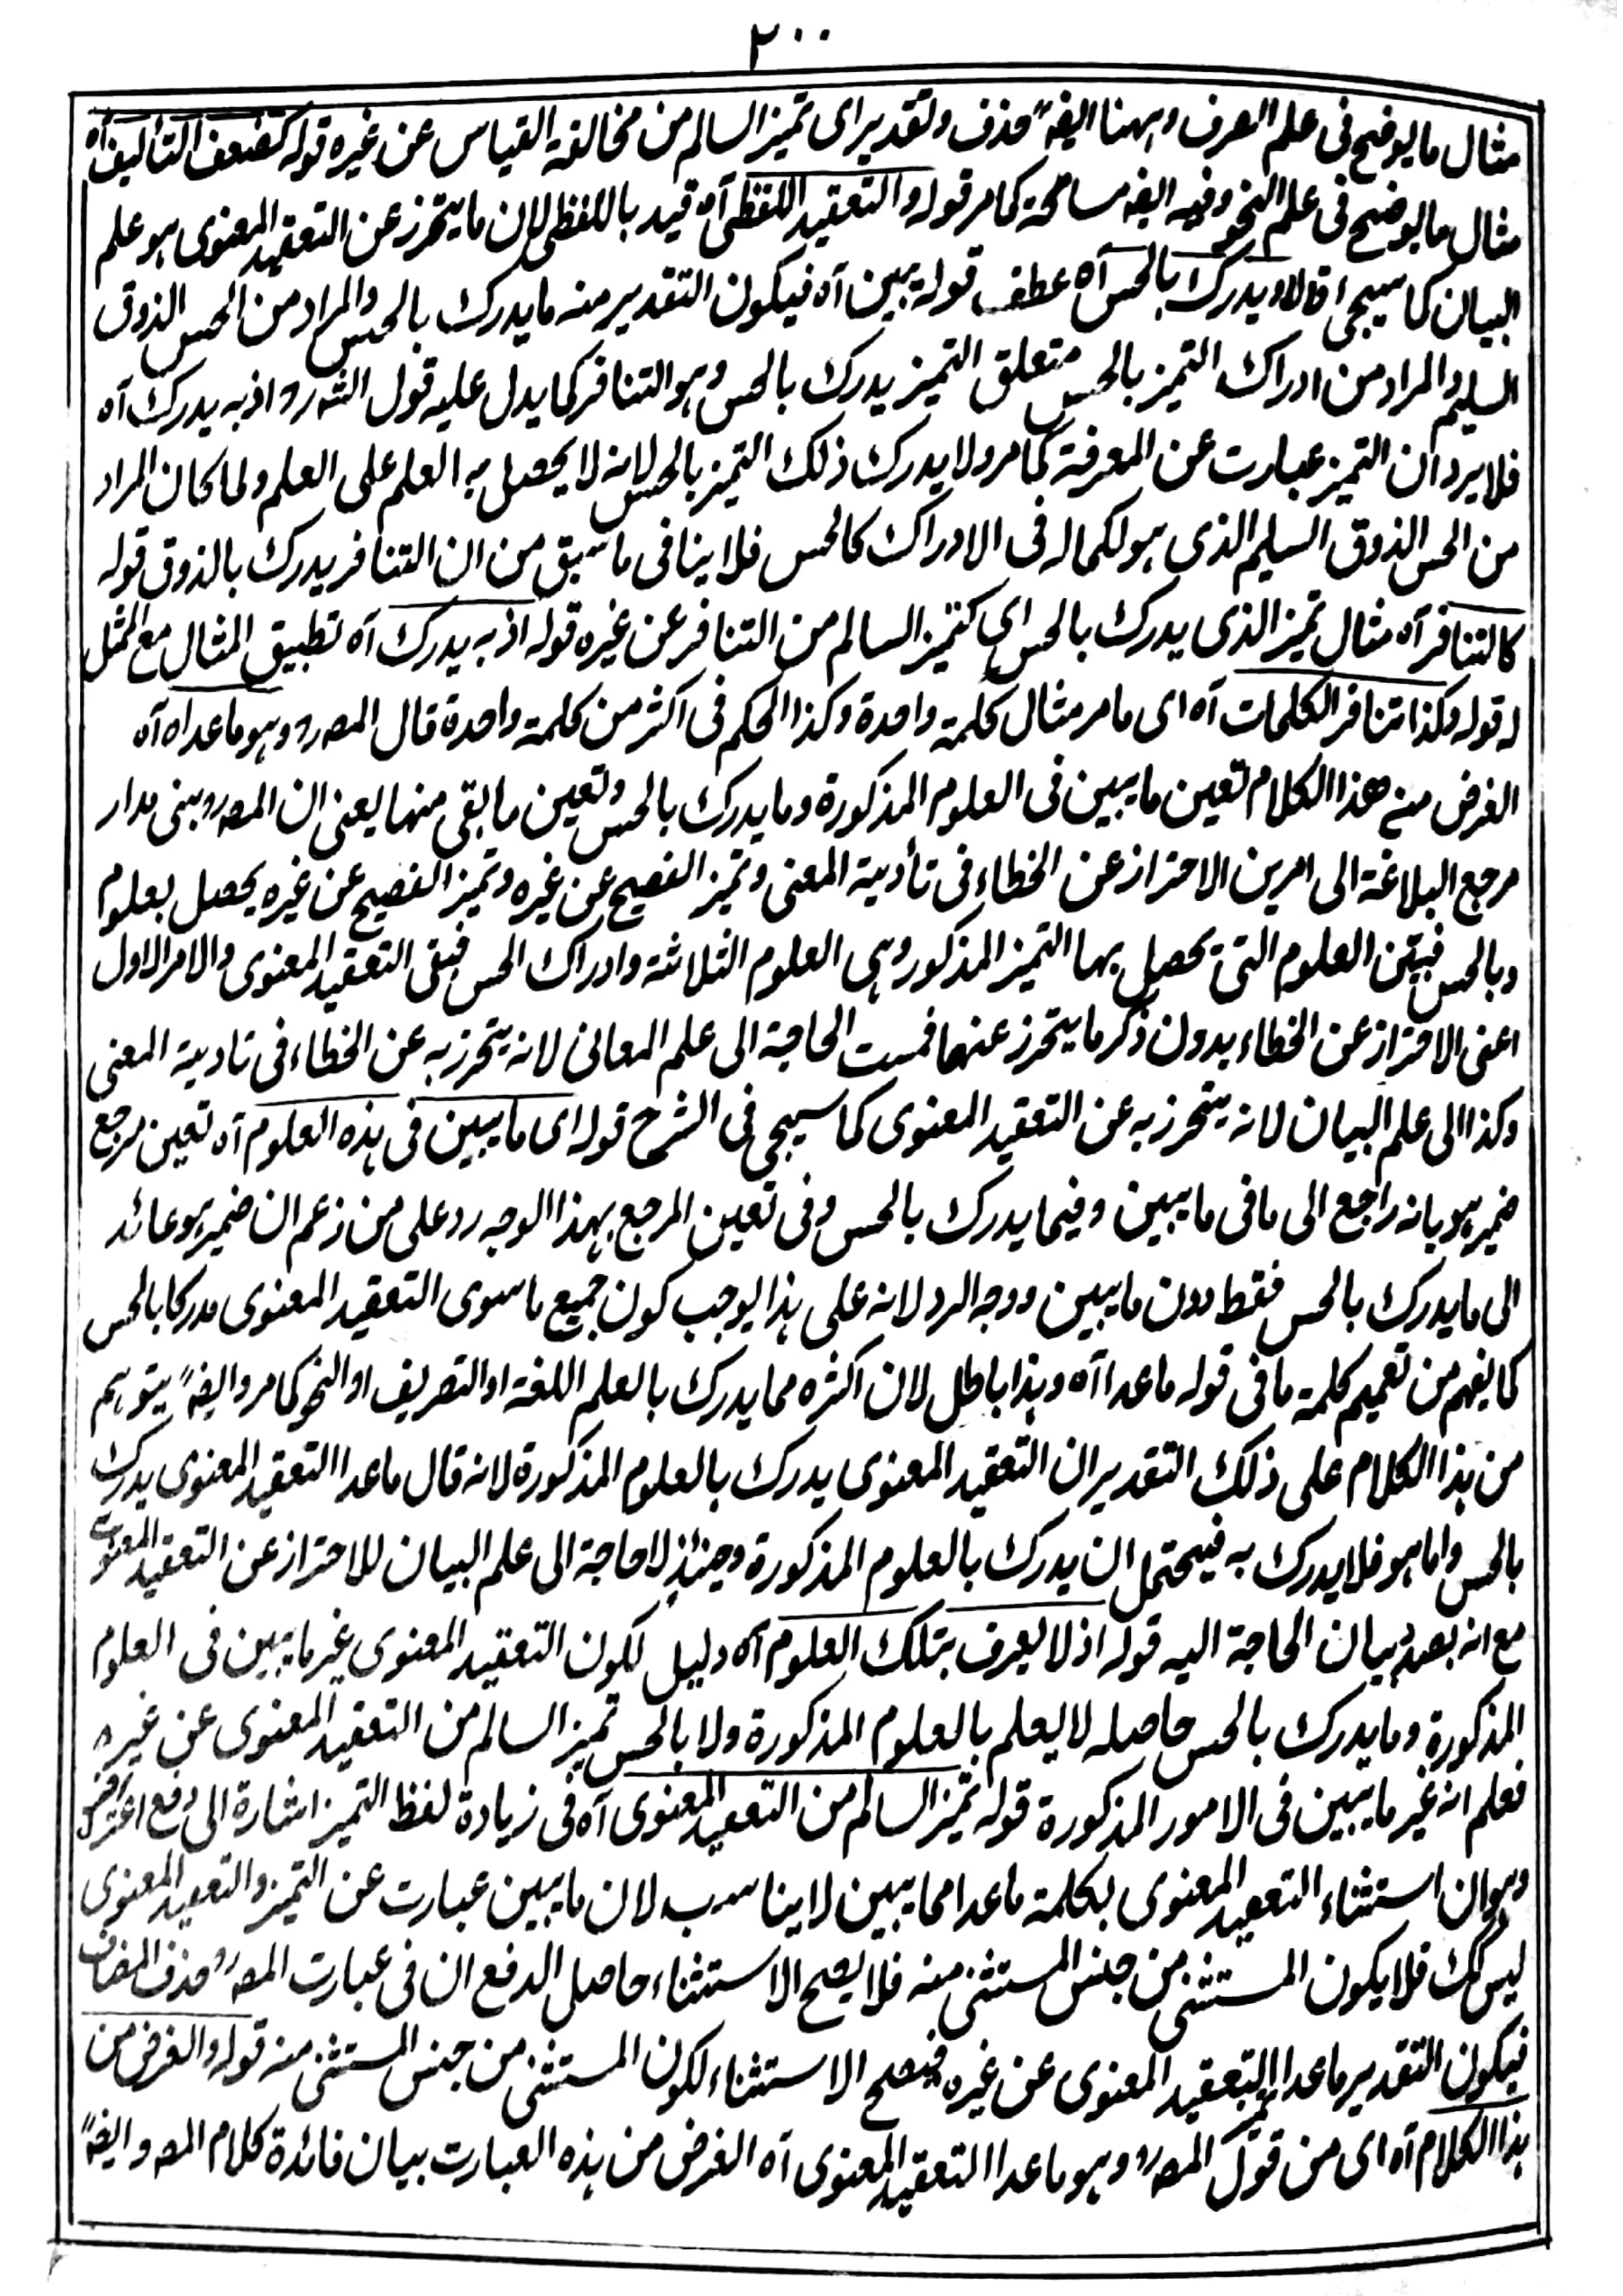 ٢٠٠
مثال ما يوضح فى علم الصرف وههنا ايضہ حذف وتقدير اى تميز السالم من مخالفة القياس عن غيره قوله كضعف التأليف آه
مثال ما يوضح فى علم النحو وفيه ايضہ مسامحة كما مر قوله والتعقيد اللفظى آه قيد باللفظى لان ما يتحرز عن التعقيد المعنوى هو علم
البيان كما سيجى قال او يدرك بالحس آه عطف قوله يبين آه فيكون التقدير منه ما يدرك بالحس والمراد من الحس الذوق
السليم والمراد من ادراك التميز بالحس متعلق التميز يدرك بالحس وهو التنافر كما يدل عليه قول الشہ رو اذ به يدرك آه
فلا يرد ان التميز عبارت عن المعرفة كما مر ولا يدرك ذلك التميز بالحس لانه لا يحصل به العلم على العلم ولما كان المراد
من الحس الذوق السليم الذى هو لكماله فى الادراك كالحس فلا ينافى ما سبق من ان التنافر يدرك بالذوق قوله
كالتنافر آه مثال تميز الذى يدرك بالحس اى كتميز السالم من التنافر عن غيره قوله اذ به يدرك آه تطبيق المثال مع الممثل
له قوله وكذا تنافر الكلمات آه اى ما مر مثال كلمة واحدة وكذا الحكم فى اكثر من كلمة واحدة قال المصہ رو وهو ما عداه آه
الغرض من هذا الكلام تعين ما يبين فى العلوم المذكورة وما يدرك بالحس وتعين ما بقى منها يعنى ان المصہ رو بنى مدار
مرجع البلاغة الى امرين الاحتراز عن الخطاء فى تأدية المعنى وتميز الفصيح عن غيره وتميز الفصيح عن غيره يحصل بعلوم
وبالحس فبيّن العلوم التى يحصل بها التميز المذكور وهى العلوم الثلاثة وادراك الحس فبقى التعقيد المعنوى والامر الاول
اعنى الاحتراز عن الخطاء بدون ذكر ما يتحرز عنهما فمست الحاجة الى علم المعانى لانه يتحرز به عن الخطاء فى تادية المعنى
وكذا الى علم البيان لانه يتحرز به عن التعقيد المعنوى كما سيجى فى الشرح قوله اى ما يبين فى هذه العلوم آه تعين مرجع
ضمير هو بانه راجع الى ما فى ما يبين وفيما يدرك بالحس وفى تعين المرجع بهذا الوجه رد على من زعم ان ضمير هو عائد
الى ما يدرك بالحس فقط دون ما يبين ووجه الرد لانه على هذا يوجب كون جميع ما سوى التعقيد المعنوى مدركا بالحس
كما يفهم من تعميم كلمة ما فى قوله ما عدا آه وهذا باطل لان اكثره مما يدرك بالعلم اللغة او التصريف او النحو كما مر وايضہ يتوهم
من هذا الكلام على ذلك التقدير ان التعقيد المعنوى يدرك بالعلوم المذكورة لانه قال ما عدا التعقيد المعنوى يدرك
بالحس واما هو فلا يدرك به فيحتمل ان يدرك بالعلوم المذكورة وحينئذ لا حاجة الى علم البيان للاحتراز عن التعقيد المعنوى
مع انه بصدد بيان الحاجة اليه قوله اذ لا يعرف بتلك العلوم آه دليل لكون التعقيد المعنوى غير ما يبين فى العلوم
المذكورة وما يدرك بالحس حاصله لا يعلم بالعلوم المذكورة ولا بالحس تميز السالم من التعقيد المعنوى عن غيره
فعلم انه غير ما يبين فى الامور المذكورة قوله تميز السالم من التعقيد المعنوى آه فى زيادة لفظ التميز اشارة الى دفع اعتراض
وهو ان استثناء التعقيد المعنوى بكلمة ما عدا مما يبين لا يناسب لان ما يبين عبارت عن التميز والتعقيد المعنوى
ليس كك فلا يكون المستثنى من جنس المستثنى منه فلا يصح الاستثناء حاصل الدفع ان فى عبارت المصہ رو حذف المضاف
فيكون التقدير ما عدا تميز التعقيد المعنوى عن غيره فيصح الاستثناء لكون المستثنى من جنس المستثنى منه قوله والغرض من
هذا الكلام آه اى من قول المصہ رو وهو ما عدا التعقيد المعنوى آه الغرض من هذه العبارت بيان فائدة كلام المصہ وايضہ